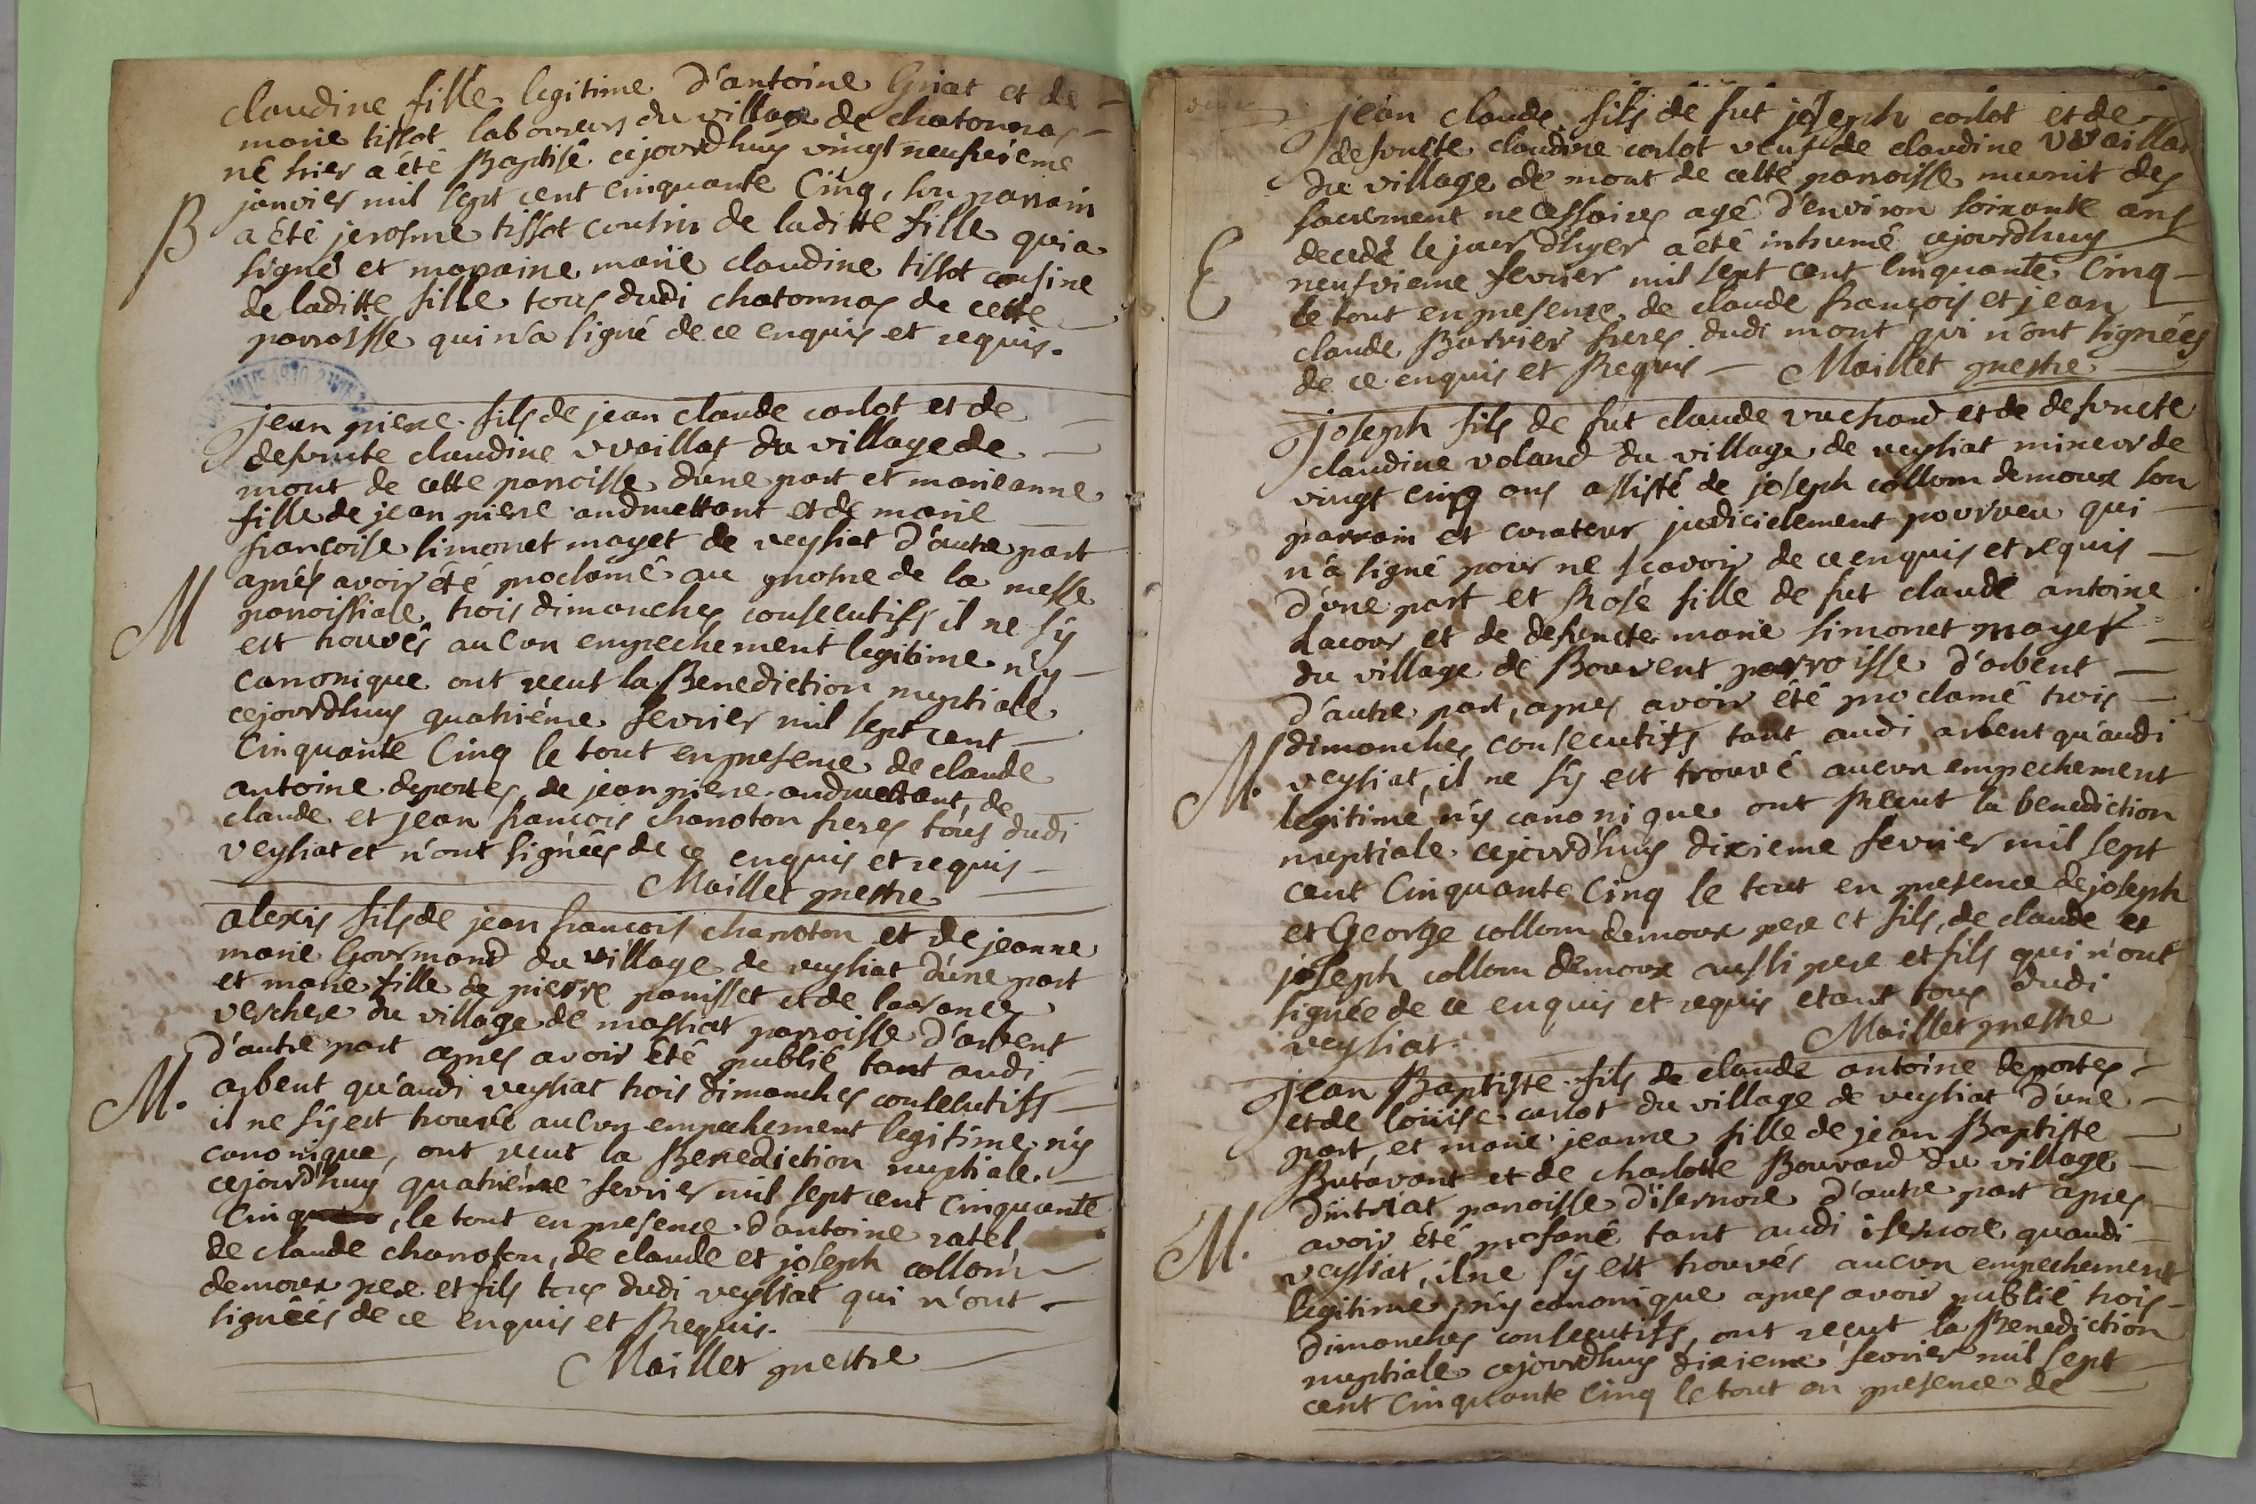 claudine fille legitime d'antoine Griat et de
marie tissot laboureurs du village de chatonnas
né hier a été Baptisé cejourdhuy vingt neufvieme
janvier mil sept cent cinquante Cinq, son parrain
B
a été jerosme tissot cousin de laditte fille qui a
signé et maraine marie claudine tissot cousine
de laditte fille tous dudi chatonnas de cette
parroisse qui n'a signé de ce enquis et requis.
jean piere fils de jean claude carlot et de
defuncte claudine vvaillat du village de
mont de cette parroisse d'une part et marieanne
fille de jean piere audmettant et de marie
francoise simonet mayet de veysiat d'autre part
M
aprés avoir été proclamé au prosne de la messe
parroissiale trois dimanches consecutifs il ne s'y
est trouvés aucun empechement legitime n'y
canonique ont recut la Benediction nuptiale
cejourdhuy quatriéme fevrier mil sept cent
Cinquante Cinq le tout en presence de claude
antoine deportes, de jean piere audmettant, de
claude et jean francois charroton freres tous dudi
veysiat et n'ont signées de ce enquis et requis
Maillet prestre
alexis fils de jean francois charroton et de jeanne
marie Gourmand du village de veysiat d'une part
et marie fille de pierre panisset et de laurance
verchere du village de massiat parroisse d'arbent
d'autre part apres avoir été publié tant audi
M.
arbent qu'audi veysiat trois dimanches consecutifs
il ne s'y est trouvé aucun empechement legitime n'y
canonique, ont recut la Benediction nuptiale
cejourd'huy quatriéme fevrier mil sept cent cinquante
Cinq, le tout en presence d'antoine ratel
de claude charroton, de claude et joseph collom
demoux pere et fils tous dudi veysiat qui n'ont
signéés de ce enquis et Requis.
Maillet prestre
jean claude fils de fut joseph carlot et de
defuncte claudine carlot veuf de claudine vvaillat
du village de mont de cette parroisse munit des
sacrement necessaires agé d'environ soixante ans
E
decedé le jour d'hyer a été inhumé cejourdhuy
neufvieme fevrier mil sept cent Cinquante Cinq
le tout en presence de claude françois et jean
claude Barrier freres dudi mont qui n'ont signées
de ce enquis et Requis Maillet prestre
joseph fils de fut claude vuchard et de defuncte
claudine voland du village de veysiat mineur de
vingt cinq ans assisté de joseph collom demoux son
parrain et curateur judicielement pourveu qui
n'a signé pour ne scavoir de ce enquis et requis
d'une part et Rose fille de fut claude antoine
Lacour et de defuncte marie simonet mayet
du village de Bouvent parroisse d'arbent
d'autre part, apres avoir été proclamé trois
dimanches consecutifs tant audi arbent qu'audi
M.
veysiat, il ne s'y est trouvé aucun empechement
legitime n'y canonique ont Recut la benediction
nuptiale cejourd'huy dixieme fevrier mil sept
cent Cinquante Cinq le tout en presence de joseph
et George collom demoux pere et fils, de claude et
joseph collom demoux aussi pere et fils qui n'ont
signée de ce enquis et requis etant tous dudi
veysiat. Maillet prestre
jean Baptiste fils de claude antoine deportes
et de loüise carlot du village de veysiat d'une
part, et marie jeanne fille de jean Baptiste
Butavant et de charlotte Bouvard du village
d'intriat parroisse d'isernore d'autre part apres
M.
avoir été tant audi isernore quaudi
veysiat, il ne s'y est trouvés aucun empechement
legitime n'y canonique apres avoir publié trois
dimanches consecutifs, ont recut la Benediction
nuptiale cejourdhuy dixieme fevrier mil sept
cent Cinquante Cinq le tout en presence de